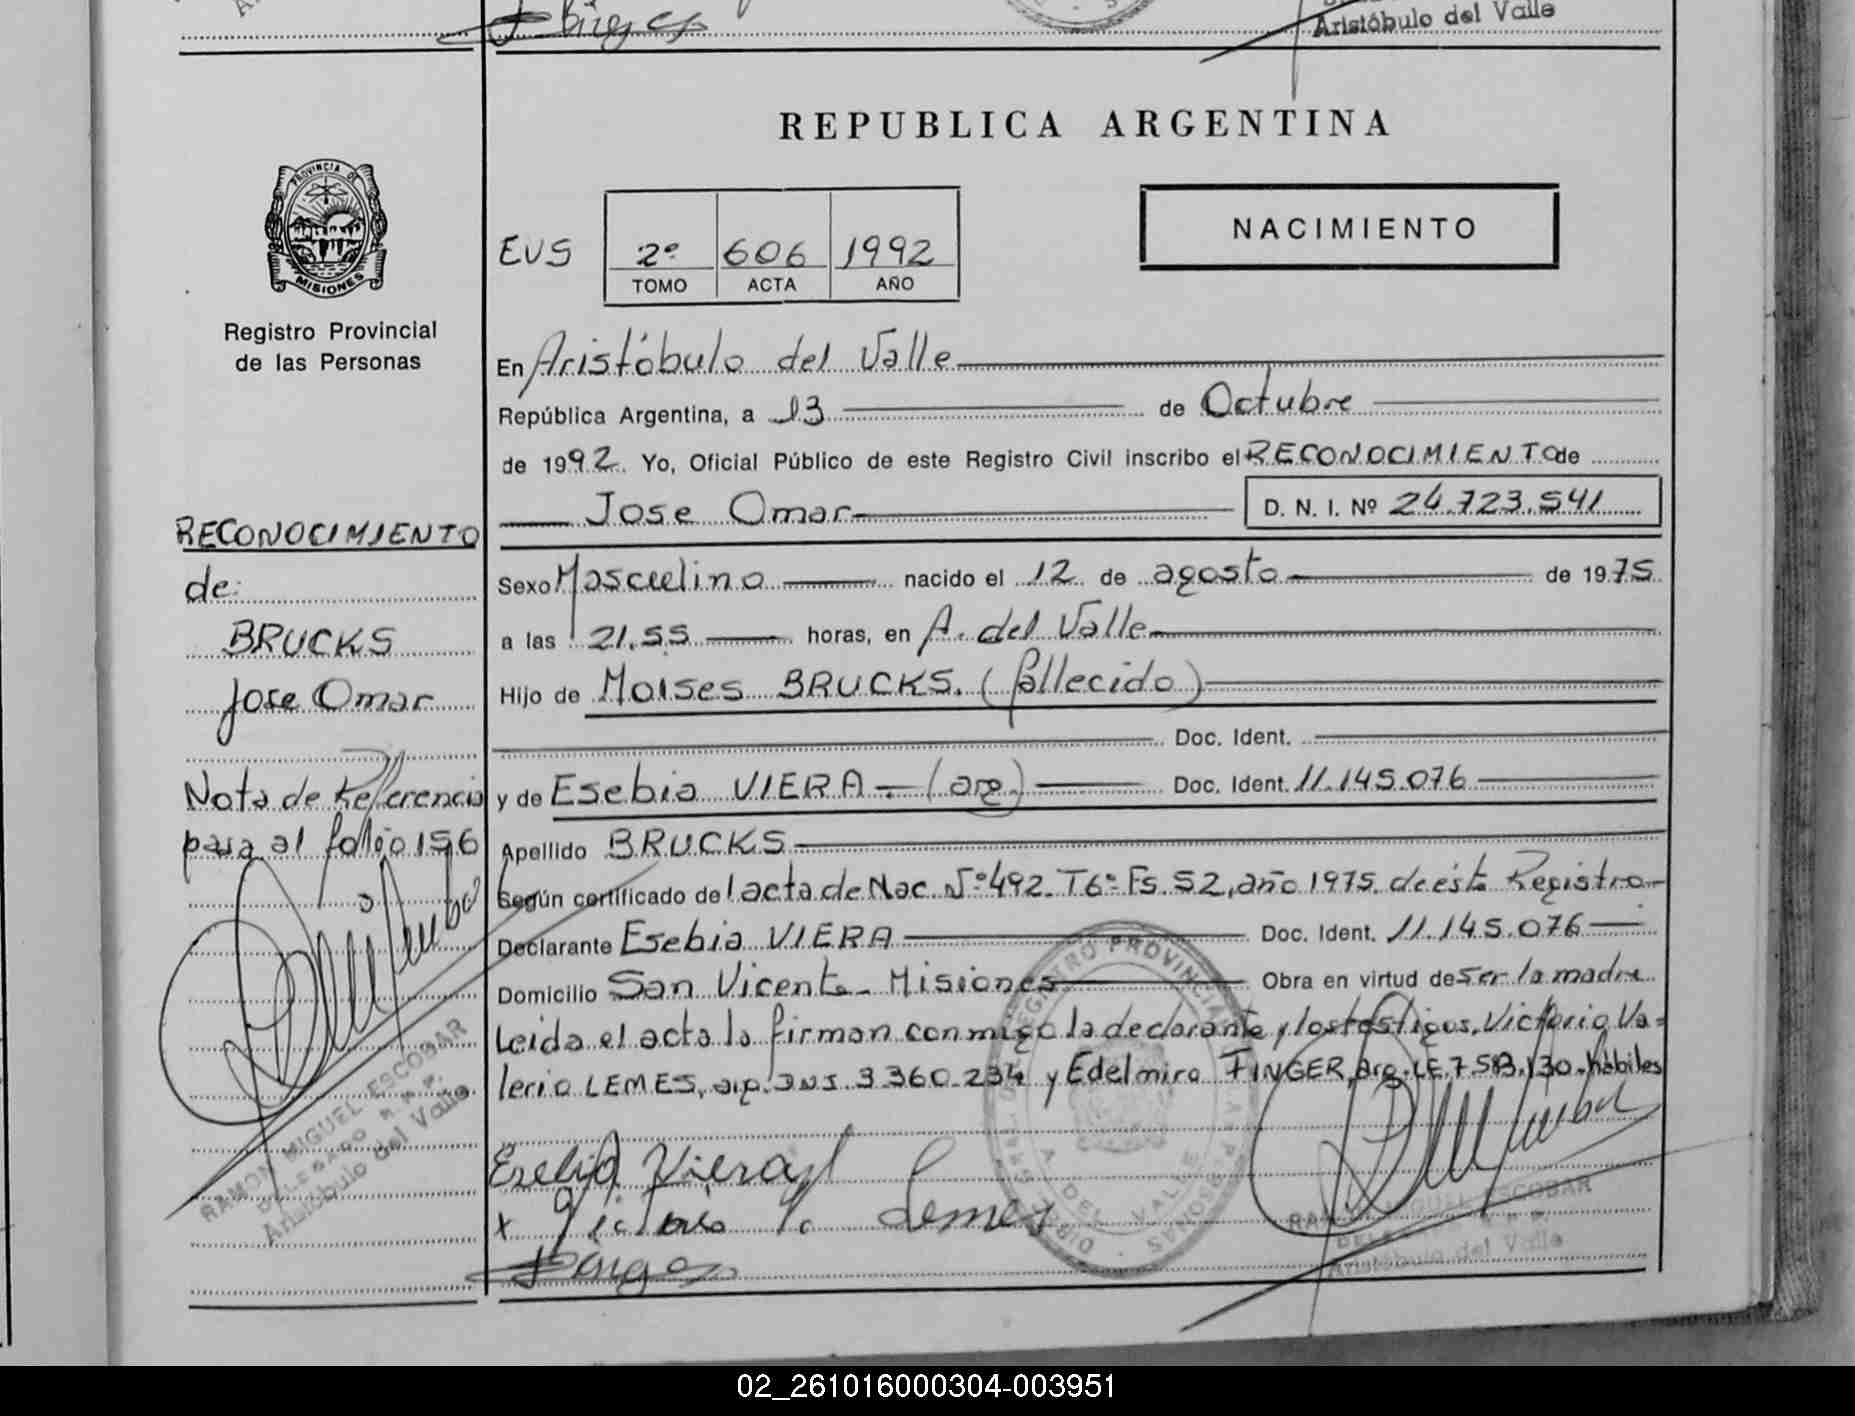 Aristóbulo del Valle
REPUBLICA ARGENTINA
PROVINCIA DE
MISIONES
Registro Provincial
de las Personas
NACIMIENTO
EVS 2º 606 1992
TOMO ACTA AÑO
En Aristóbulo del Valle
República Argentina, a 13 de Octubre
de 1992. Yo, Oficial Público de este Registro Civil inscribo el RECONOCIMIENTO de
Jose Omar D. N. I. Nº 24.723.541
RECONOCIMIENTO
de:
BRUCKS
Jose Omar
Nota de Referencia
para al folio 156
Sexo Masculino nacido el 12 de agosto de 1975
a las 21.55 horas, en A. del Valle
Hijo de Moises BRUCKS. (fallecido)
Doc. Ident.
y de Esebia VIERA - (arg.) Doc. Ident. 11.145.076
Apellido BRUCKS
Según certificado del acta de Nac. Nº 492. T6º Fs. 52, año 1975. de este Registro
Declarante Esebia VIERA Doc. Ident. 11.145.076
Domicilio San Vicente - Misiones Obra en virtud de ser la madre
Leida el acta la firman conmigo la declarante y los testigos, Victorio Va-
lerio LEMES, 3.360.234 y Edelmiro FINGER, arg. LE. 7.513.130. habiles
Esebia Viera
x Victorio V. Lemes
RAMON MIGUEL ESCOBAR
DELEGADO
Aristóbulo del Valle
REGISTRO PROVINCIAL DE LAS PERSONAS
A. DEL VALLE
RAMON MIGUEL ESCOBAR
DELEGADO
Aristóbulo del Valle
02_261016000304-003951